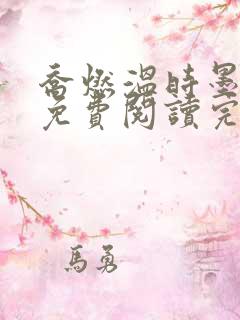 喬燃溫時墨
免費閱讀完
馬勇